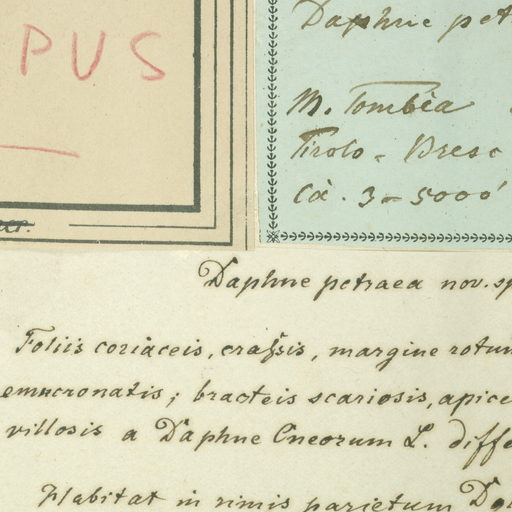 PUS
Daphne pet
M. Tombéa
Tirolo - Bresc
Ca. 3-5000'
Daphne petraea nov. sp
Foliis coriaceis, crassis, margine rotun
emucronatis; bracteis scariosis, apice
villosis a Daphne Cneorum L. diffe
Habitat in rimis parietum Do